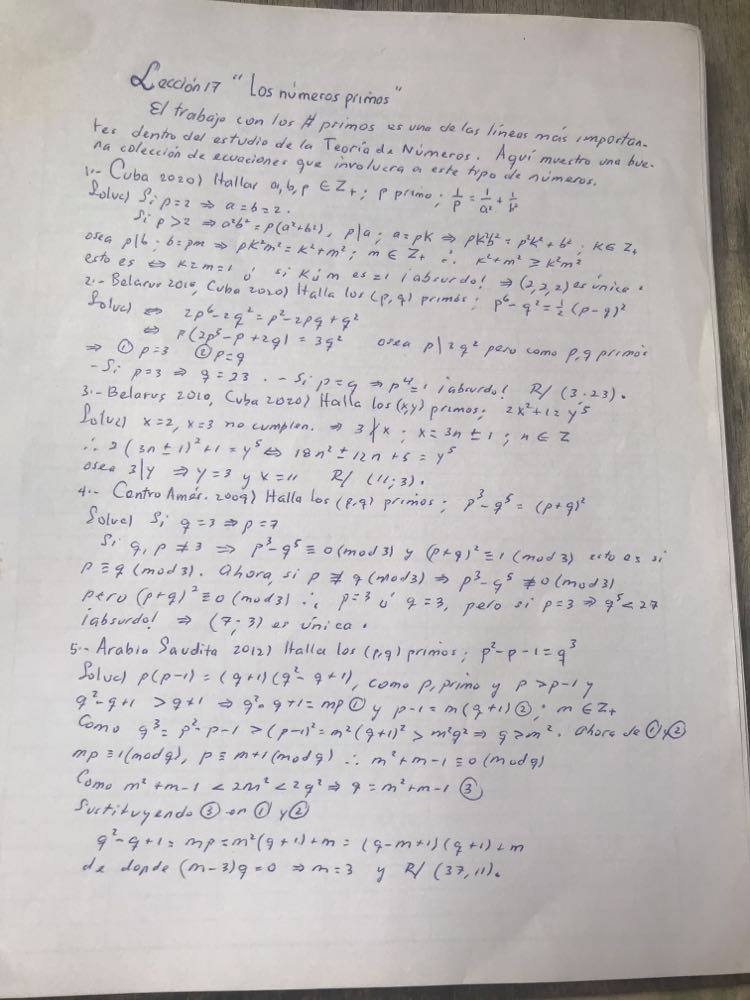 Lección 17 "Los números primos"
El trabajo con los # primos es una de las líneas más importan-
tes dentro del estudio de la Teoría de Números. Aquí muestro una bue-
na colección de ecuaciones que involucra a este tipo de números.
1.- Cuba 2020) Hallar a,b,p ∈ Z₊; p primo; 1/p = 1/a² + 1/b²
Soluc) Si p=2 ⇒ a=b=2.
Si p>2 ⇒ a²b² = p(a²+b²), p|a; a=pk ⇒ pk²b² = p²k²+b²; k∈Z₊
osea p|b; b=pm ⇒ pk²m² = k²+m²; m∈Z₊ ∴ k²+m² ≥ k²m²
esto es ⇔ k=m=1 ó si k ó m es =1 ¡absurdo! ⇒ (2,2,2) es única.
2.- Belarus 2010, Cuba 2020) Halla los (p,q) primos; p⁶-q² = ½(p-q)²
Soluc) ⇔ 2p⁶-2q² = p²-2pq+q²
⇔ p(2p⁵-p+2q) = 3q² osea p|3q² pero como p,q primos
⇒ ① p=3 ② p=q
- Si p=3 ⇒ q=23. - Si p=q ⇒ p⁴=1 ¡absurdo! R/ (3,23).
3.- Belarus 2010, Cuba 2020) Halla los (x,y) primos; 2x²+1=y⁵
Soluc) x=2, x=3 no cumplen. ⇒ 3∤x; x=3n±1; n∈Z
∴ 2(3n±1)²+1=y⁵ ⇔ 18n²±12n+3=y⁵
osea 3|y ⇒ y=3 y x=11 R/ (11;3).
4.- Centro Amér. 2009) Halla los (p,q) primos; p³-q⁵ = (p+q)²
Soluc) Si q=3 ⇒ p=7
Si q,p ≠ 3 ⇒ p³-q⁵ ≡ 0 (mod 3) y (p+q)² ≡ 1 (mod 3) esto es si
p ≡ q (mod 3). Ahora, si p ≢ q (mod 3) ⇒ p³-q⁵ ≢ 0 (mod 3)
pero (p+q)² ≡ 0 (mod 3) ∴ p=3 ó q=3, pero si p=3 ⇒ q⁵<27
¡absurdo! ⇒ (7;3) es única.
5.- Arabia Saudita 2012) Halla los (p,q) primos; p²-p-1=q³
Soluc) p(p-1) = (q+1)(q²-q+1), como p, primo y p>p-1 y
q²-q+1 > q+1 ⇒ q²-q+1=mp ① y p-1=m(q+1) ②; m∈Z₊
Como q³ = p²-p-1 > (p-1)² = m²(q+1)² > m²q² ⇒ q>m². Ahora de ① y ②
mp ≡ 1 (mod q), p ≡ m+1 (mod q) ∴ m²+m-1 ≡ 0 (mod q)
Como m²+m-1 < 2m² < 2q² ⇒ q = m²+m-1 ③
Sustituyendo ③ en ① y ②
q²-q+1 = mp = m²(q+1)+m = (q-m+1)(q+1)+m
de donde (m-3)q=0 ⇒ m=3 y R/ (37,11).